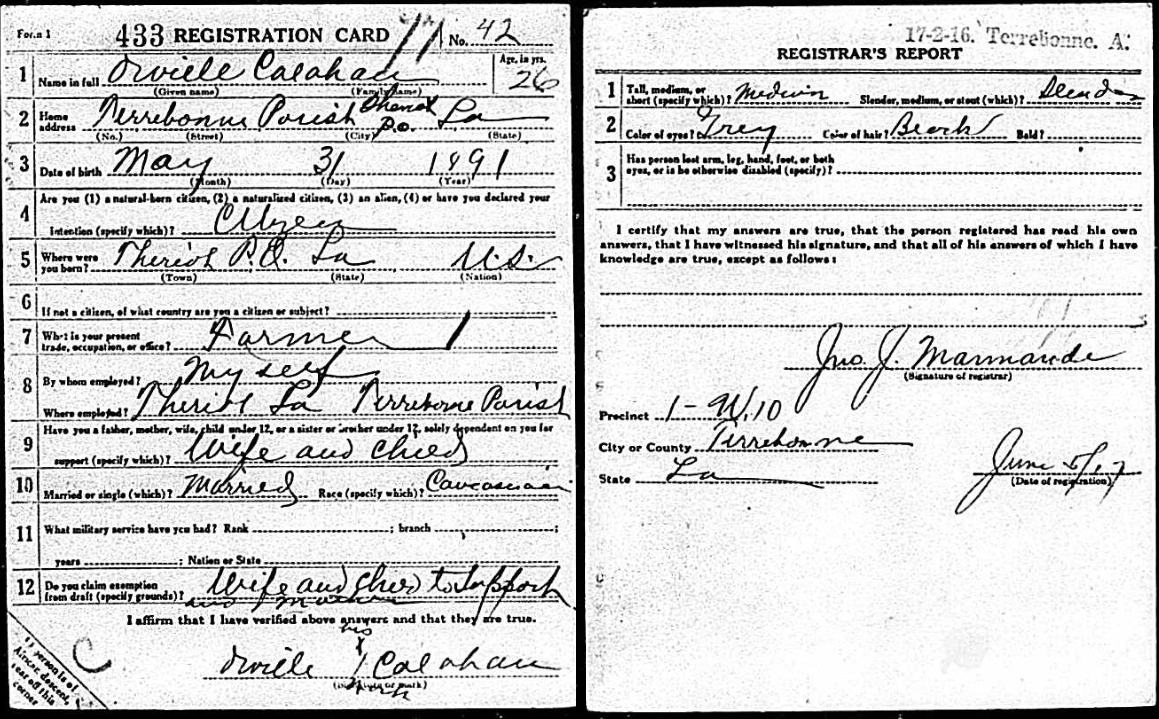 Form 1
433 REGISTRATION CARD No. 42
1 Name in full Orville Calahan Age, in yrs. 26
(Given name) (Family name)
2 Home address Terrebonne Parish Theriot P.O. La
(No.) (Street) (City) (State)
3 Date of birth May 31 1891
(Month) (Day) (Year)
4 Are you (1) a natural-born citizen, (2) a naturalized citizen, (3) an alien, (4) or have you declared your
intention (specify which)? Citizen
5 Where were you born? Theriot P.O. La U.S.
(Town) (State) (Nation)
6 If not a citizen, of what country are you a citizen or subject?
7 What is your present trade, occupation, or office? Farmer 1
8 By whom employed? My self
Where employed? Theriot La Terrebonne Parish
9 Have you a father, mother, wife, child under 12, or a sister or brother under 12, solely dependent on you for
support (specify which)? Wife and child
10 Married or single (which)? Married Race (specify which)? Caucasian
11 What military service have you had? Rank ; branch ;
years ; Nation or State
12 Do you claim exemption from draft (specify grounds)? Wife and child to support
and Mother
I affirm that I have verified above answers and that they are true.
his
Orville X Calahan
(Signature or mark)
mark
If person is of African descent, tear off this corner
C
17-2-16. Terrebonne. A.
REGISTRAR'S REPORT
1 Tall, medium, or short (specify which)? Medium Slender, medium, or stout (which)? Slender
2 Color of eyes? Grey Color of hair? Black Bald?
3 Has person lost arm, leg, hand, foot, or both eyes, or is he otherwise disabled (specify)?
I certify that my answers are true, that the person registered has read his own
answers, that I have witnessed his signature, and that all of his answers of which I have
knowledge are true, except as follows:
Jno. J. Marmande
(Signature of registrar)
Precinct 1 - W. 10
City or County Terrebonne
State La
June 5/17
(Date of registration)